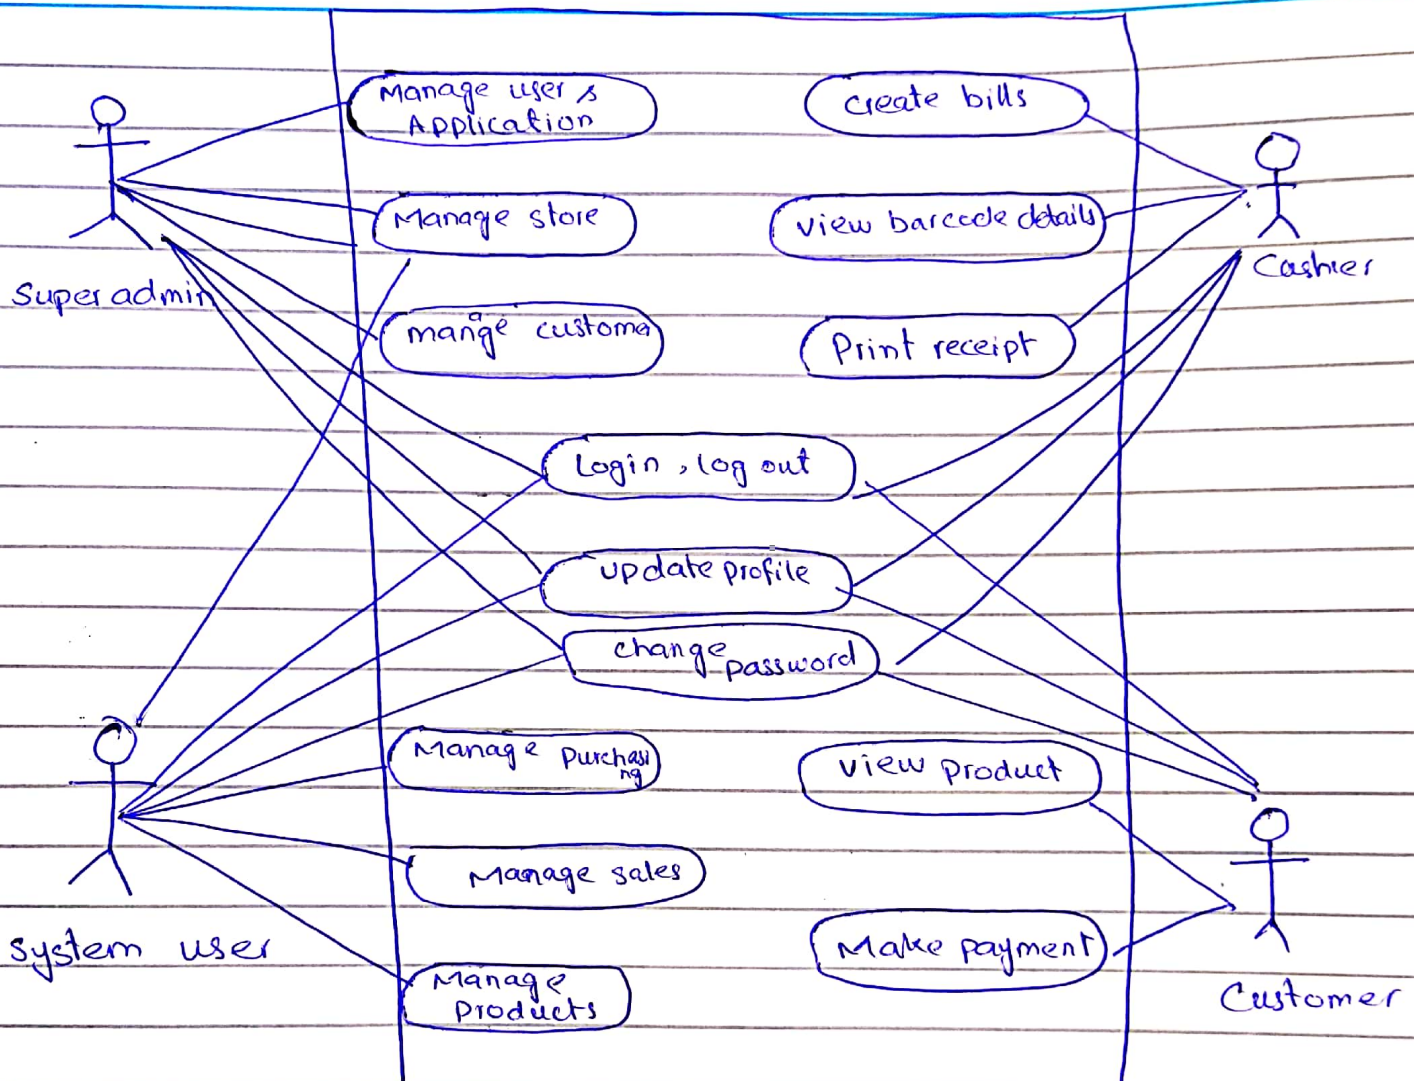 Manage user s
Application
Create bills
Manage store
View barcode details
Super admin
Cashier
mange customer
a
Print receipt
Login , log out
update profile
change
password
Manage Purchasi
ng
View product
Manage sales
System user
Make payment
Manage
Products
Customer